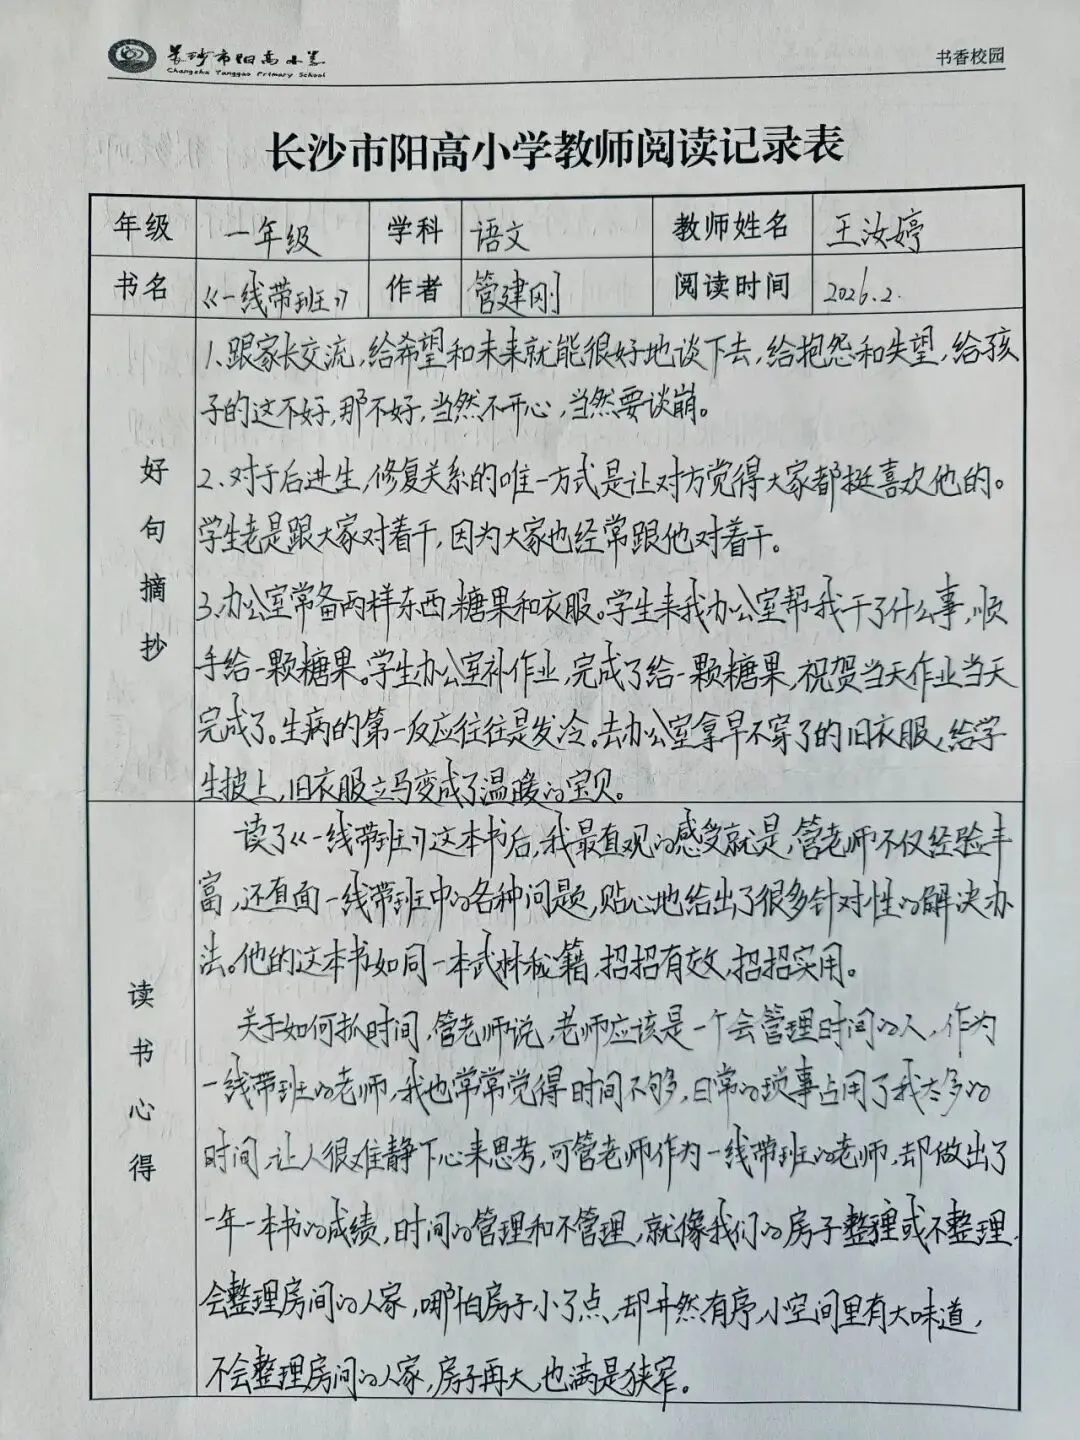 长沙市阳高小学
Changsha Yanggao Primary School
书香校园
长沙市阳高小学教师阅读记录表
年级 一年级 学科 语文 教师姓名 王汝婷
书名 《一线带班》 作者 管建刚 阅读时间 2026.2.
好句摘抄
1.跟家长交流,给希望和未来就能很好地谈下去,给抱怨和失望,给孩
子的这不好,那不好,当然不开心,当然要谈崩。
2.对于后进生,修复关系的唯一方式是让对方觉得大家都挺喜欢他的。
学生老是跟大家对着干,因为大家也经常跟他对着干。
3.办公室常备两样东西,糖果和衣服。学生来我办公室帮我干了什么事,顺
手给一颗糖果。学生办公室补作业,完成了给一颗糖果,祝贺当天作业当天
完成了。生病的第一反应往往是发冷。去办公室拿早不穿了的旧衣服,给学
生披上,旧衣服立马变成了温暖的宝贝。
读书心得
读了《一线带班》这本书后,我最直观的感受就是,管老师不仅经验丰
富,还直面一线带班中的各种问题,贴心地给出了很多针对性的解决办
法。他的这本书如同一本武林秘籍,招招有效,招招实用。
关于如何抓时间,管老师说,老师应该是一个会管理时间的人,作为
一线带班的老师,我也常常觉得时间不够,日常的琐事占用了我太多的
时间,让人很难静下心来思考,可管老师作为一线带班的老师,却做出了
一年一本书的成绩,时间的管理和不管理,就像我们的房子整理或不整理,
会整理房间的人家,哪怕房子小了点,却井然有序,小空间里有大味道,
不会整理房间的人家,房子再大,也满是狭窄。